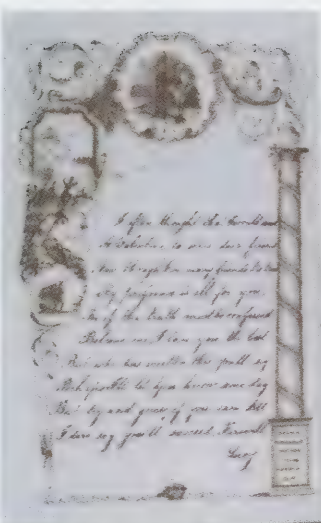 I often thought that I would send
A Valentine to some dear friend
Now though I've many friends
My preference is all for you,
So if the truth must be confessed
Believe me, I love you the best
But who has wrote this you'll say
Perhaps I'll let you know some day
But try and guess if you can tell
I dare say you'll succeed. Farewell
Lucy